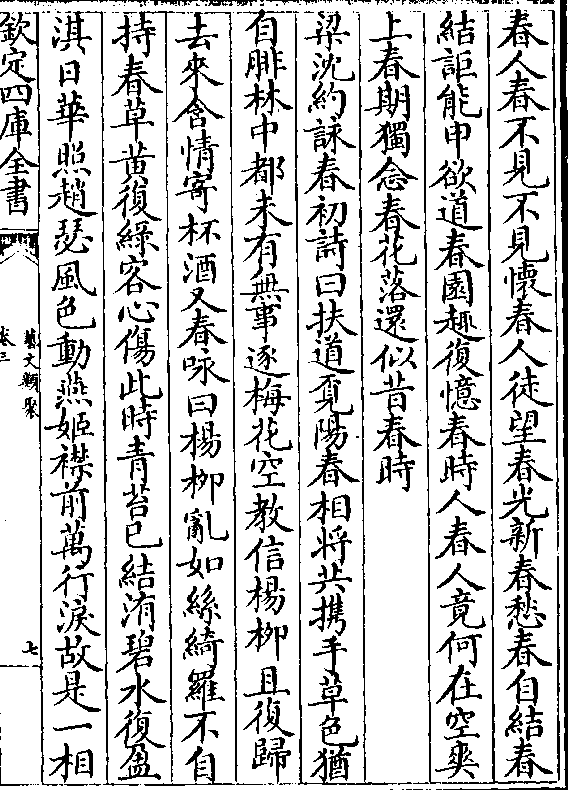 春人春不見不見懷春人徒望春光新春愁春自結春
結詎能申欲道春園趣復憶春時人春人竟何在空爽
上春期獨念春花落還似昔春時
梁沈約詠春初詩曰扶道覓陽春相將共携手草色猶
自腓林中都未有無事逐梅花空教信楊柳且復歸
去來含情寄杯酒又春咏曰楊柳亂如絲綺羅不自
持春草黄復緑客心傷此時青苔已結洧碧水復盈
淇日華照趙瑟風色動燕姬襟前萬行淚故是一相
欽定四庫全書
藝文類聚
卷三
七